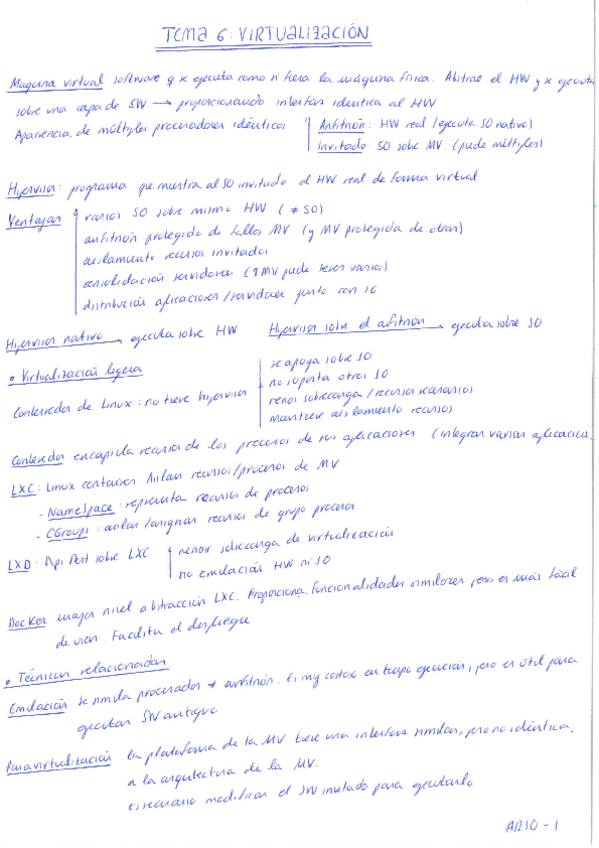 TEMA 6: VIRTUALIZACIÓN
Maquina virtual software q se ejecuta como si fuera la máquina física. Abstrae el HW y se ejecuta
sobre una capa de SW → proporcionando interfaz identica al HW
Apariencia de múltiples procesadores idénticos
Anfitrión: HW real (ejecuta SO nativo)
Invitado SO sobre MV (puede múltiples)
Hipervisor: programa que muestra al SO invitado el HW real de forma virtual
Ventajas
varios SO sobre mismo HW (≠ SO)
anfitrión protegido de fallos MV (y MV protegida de otras)
aislamiento recursos invitados
consolidación servidores (1 MV puede tener varios)
distribución aplicaciones/servidores junto con so
Hipervisor nativo → ejecuta sobre HW
Hipervisor sobre el anfitrion → ejecuta sobre SO
• Virtualización ligera
Contenedor de Linux: no tiene hipervisor
se apoya sobre SO
no soporta otros SO
menos sobrecarga / recursos necesarios
mantiene aislamiento recursos
Contenedor encapsula recursos de los procesos de sus aplicaciones (integran varias aplicacio.
LXC: Linux container. Aislan recursos/procesos de MV
- Namespace: representa recursos de procesos
- CGroups: aislar/asignar recursos de grupo procesos
LXD: Api Rest sobre LXC
menor sobrecarga de virtualización
no emulación HW ni SO
Docker mayor nivel abstracción LXC. Proporciona funcionalidades similares pero es más fácil
de usar. Facilita el despliegue
• Técnicas relacionadas
Emulación se simula procesador ≠ anfitrión. Es muy costoso en tiempo ejecución, pero es útil para
ejecutar SW antiguo
Paravirtualización la plataforma de la MV tiene una interfaz similar, pero no idéntica.
a la arquitectura de la MV.
es necesario modificar el SW invitado para ejecutarlo
ARSO - 1